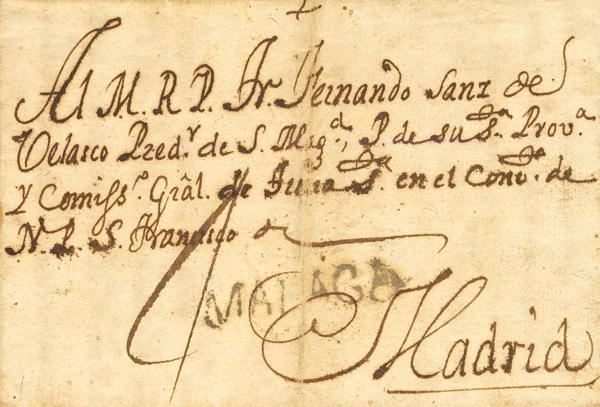 Al M. R. P. Fr. Fernando Sanz de
Velasco Pred.r de S. Mag.d, P. de su S.ta Prov.a
Y Comiss.o Grâl. de S.ta en el Conv.to de
N. P. S. Francisco
MALAGA
Madrid